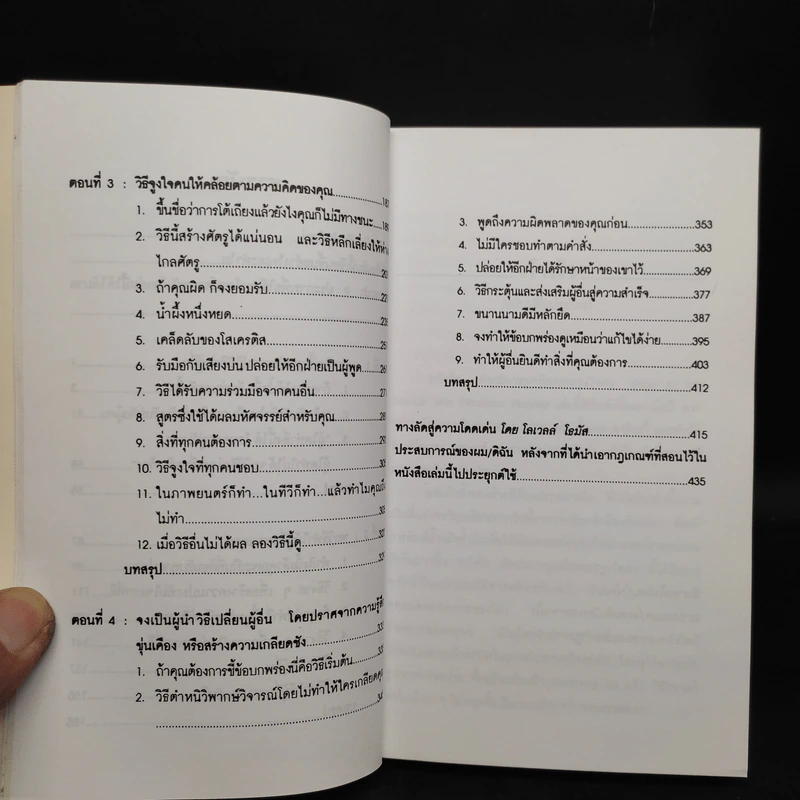 ตอนที่ 3 : วิธีจูงใจคนให้คล้อยตามความคิดของคุณ
1. ขึ้นชื่อว่าการโต้เถียงแล้วยังไงคุณก็ไม่มีทางชนะ
2. วิธีนี้สร้างศัตรูได้แน่นอน และวิธีหลีกเลี่ยงให้ห่าง
ไกลศัตรู
3. ถ้าคุณผิด ก็จงยอมรับ
4. น้ำผึ้งหนึ่งหยด
5. เคล็ดลับของโสเครติส
6. รับมือกับเสียงบ่น ปล่อยให้อีกฝ่ายเป็นผู้พูด
7. วิธีได้รับความร่วมมือจากคนอื่น
8. สูตรซึ่งใช้ได้ผลมหัศจรรย์สำหรับคุณ
9. สิ่งที่ทุกคนต้องการ
10. วิธีจูงใจที่ทุกคนชอบ
11. ในภาพยนตร์ก็ทำ...ในทีวีก็ทำ...แล้วทำไมคุณถึง
ไม่ทำ
12. เมื่อวิธีอื่นไม่ได้ผล ลองวิธีนี้ดู
บทสรุป
ตอนที่ 4 : จงเป็นผู้นำ วิธีเปลี่ยนผู้อื่น โดยปราศจากความรู้สึก
ขุ่นเคือง หรือสร้างความเกลียดชัง
1. ถ้าคุณต้องการชี้ข้อบกพร่องนี่คือวิธีเริ่มต้น
2. วิธีตำหนิวิพากษ์วิจารณ์โดยไม่ทำให้ใครเกลียดคุณ
3. พูดถึงความผิดพลาดของคุณก่อน 353
4. ไม่มีใครชอบทำตามคำสั่ง 363
5. ปล่อยให้อีกฝ่ายได้รักษาหน้าของเขาไว้ 369
6. วิธีกระตุ้นและส่งเสริมผู้อื่นสู่ความสำเร็จ 377
7. ขนานนามดีมีหลักยึด 387
8. จงทำให้ข้อบกพร่องดูเหมือนว่าแก้ไขได้ง่าย 395
9. ทำให้ผู้อื่นยินดีทำสิ่งที่คุณต้องการ 403
บทสรุป 412
ทางลัดสู่ความโดดเด่น โดย โลเวลล์ โธมัส 415
ประสบการณ์ของผม/ดิฉัน หลังจากที่ได้นำเอากฎเกณฑ์ที่สอนไว้ใน
หนังสือเล่มนี้ไปประยุกต์ใช้ 435